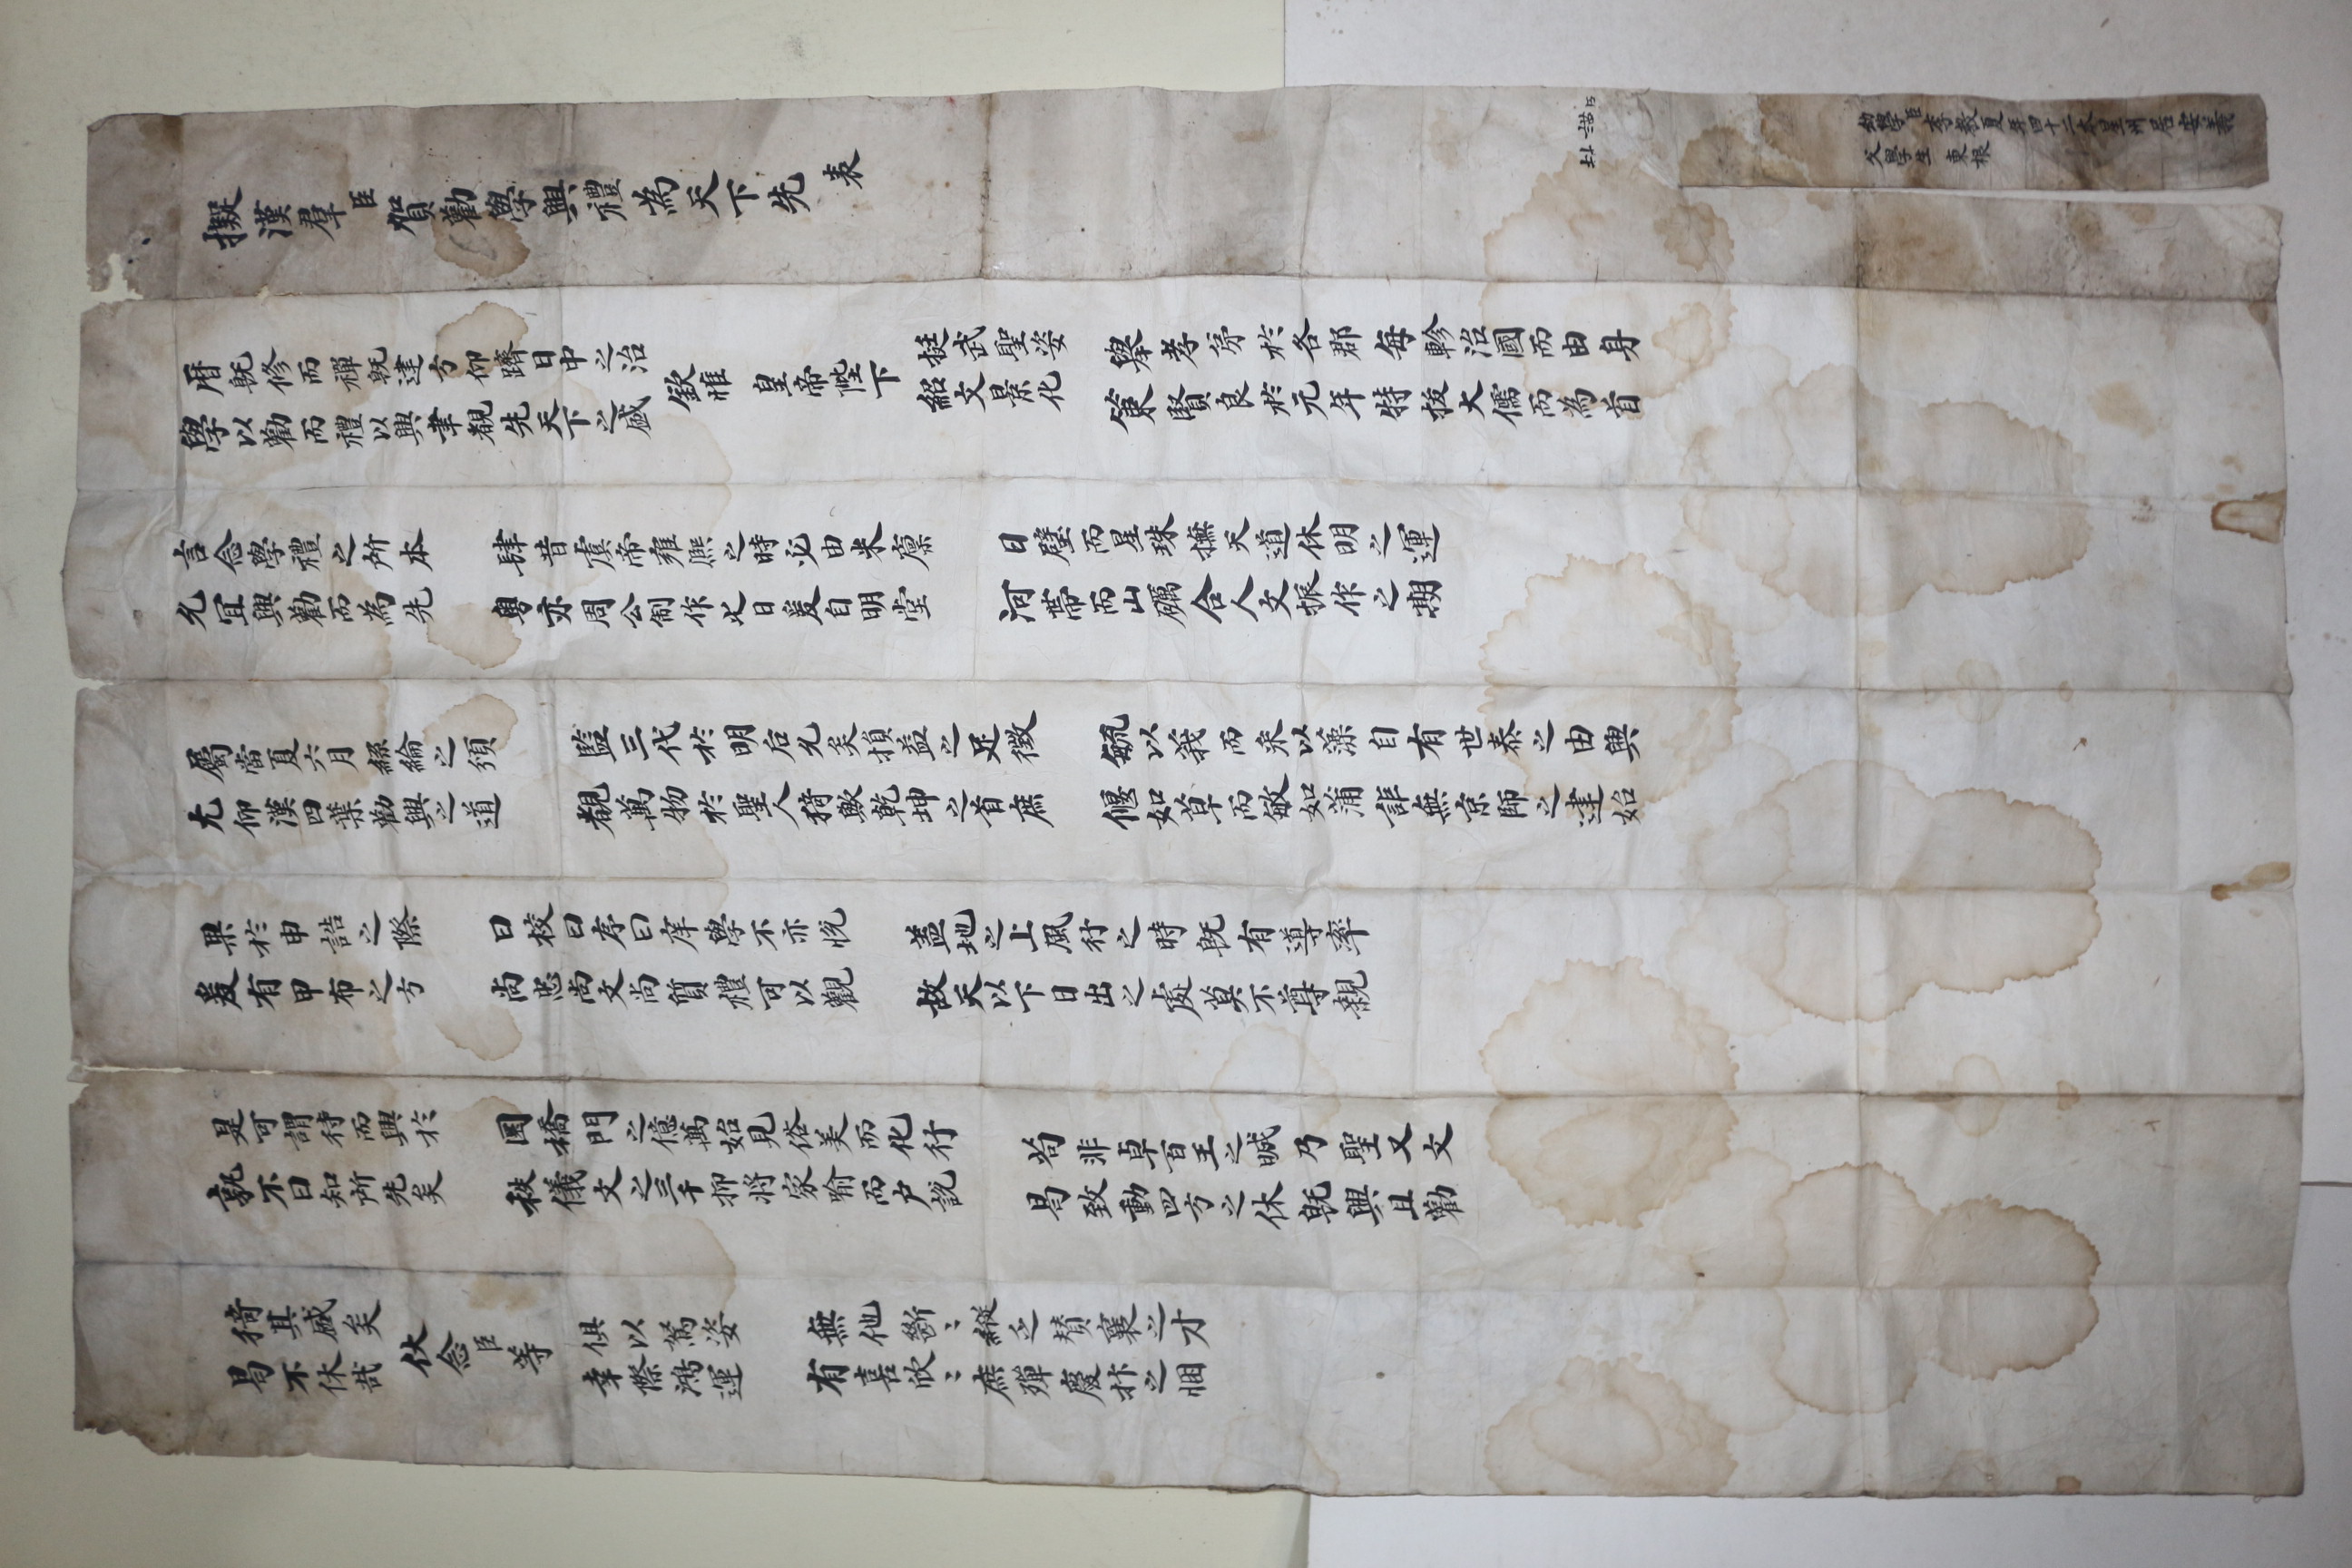 幼學臣李教夏年四十二本星州居安義
父學生 東根
擬漢羣臣賀勸學興禮為天下先 表
曆既修而禪既建方仰躋日中之治
學以勸而禮以興聿覩先天下之盛
欽惟
皇帝陛下
挺武聖姿
紹文景化
舉孝弟於各郡每軫治國而由身
策賢良於元年特拔大儒而為首
言念學禮之所本
允宜興勸而為先
肆昔虞帝雍熙之時必由米廩
粤亦周公制作之日爰自明堂
日璧而星珠撫天道休明之運
河帶而山礪合人文振作之期
屬當夏六月絲綸之頒
尤仰漢四葉勸興之道
監三代於明后允矣損益之足徵
覩萬物於聖人猗歟乾坤之首庶
毓以莪而采以藻自有世泰之由興
偃如草而敏如蒲詎無京師之建始
果於申誥之際
爰有甲布之方
曰校曰序曰庠學不亦悅
尚忠尚文尚質禮可以觀
盖地之上風行之時既有導率
故天以下日出之處莫不尊親
是可謂待而興於
孰不曰知所先矣
圜橋門之億萬始見俗美而化行
秩儀文之三千抑將家喻而戶說
苟非卓百王之誠乃聖又文
曷致動四方之休既興且勸
猗其盛矣
曷不休哉
伏念臣等
俱以駑姿
幸際鴻運
無他斷〻縱乏贊襄之才
有喜欣〻庶殫慶抃之悃